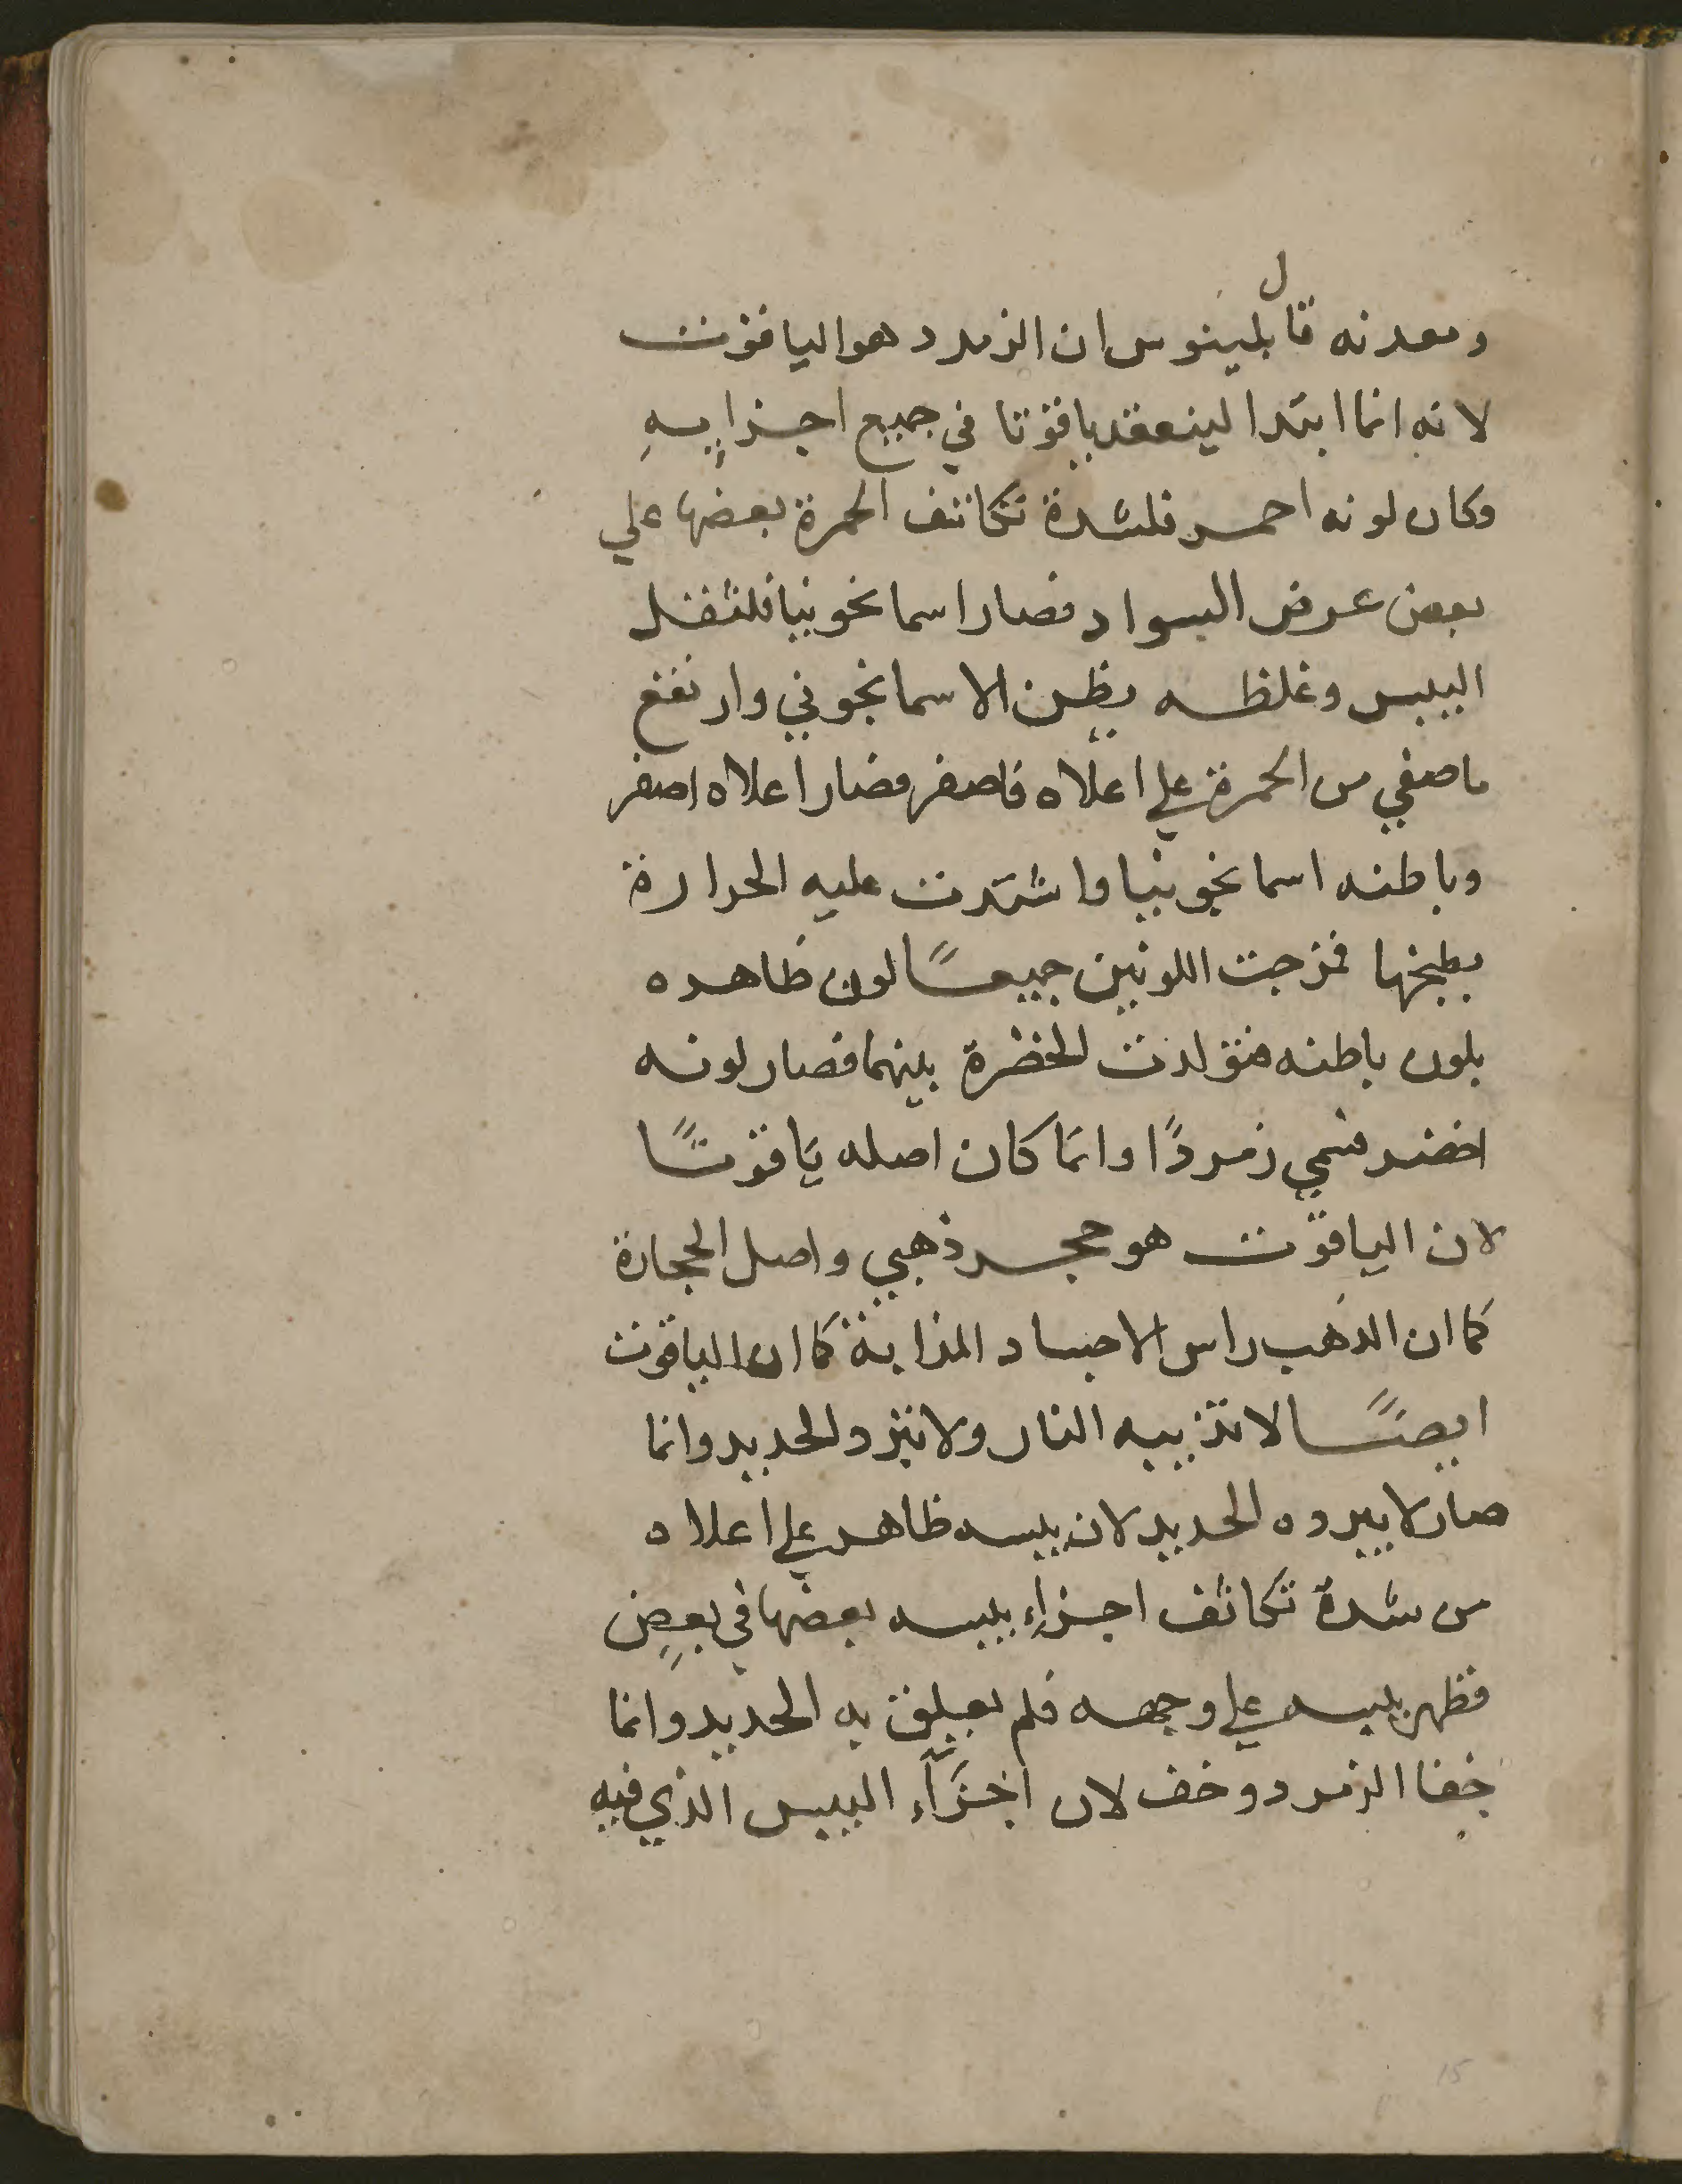 ومعدنه قال بلينوس ان الزمرد هو الياقوت
لانه انما ابتدا لينعقد ياقوتا في جميع اجزايِهِ
وكان لونه احمر فلشدة تكاثف الحمرة بعضها علي
بعض عرض السواد فصار اسمانجونيا فلثقل
اليبس وغلظه يظن الاسمانجوني وارتفع
ما صفي من الحمرة علي اعلاه فاصفر فصار اعلاه اصفر
وباطنه اسمانجونيا واشتدت عليه الحرارة
بطبخها فمزجت اللونين جميعًا لون ظاهره
بلون باطنه فتولدت الخضرة بينهما فصار لونه
اخضر فسمي زمردًا وانما كان اصله ياقوتًا
لان الياقوت هو حجر ذهبي واصل الحجارة
كما ان الذهب راس الاجساد المذابة كما ان الياقوت
ايضًا لا تذيبه النار ولا تبرد الحديد وانما
صار لا يبرده الحديد لان يبسه ظاهر علي اعلاه
من شدة تكاثف اجزاء يبسه بعضها في بعضٍ
فظهر يبسه علي وجهه فلم يعلق به الحديد وانما
جفا الزمرد وخف لان اجزآء اليبس الذي فيه
15